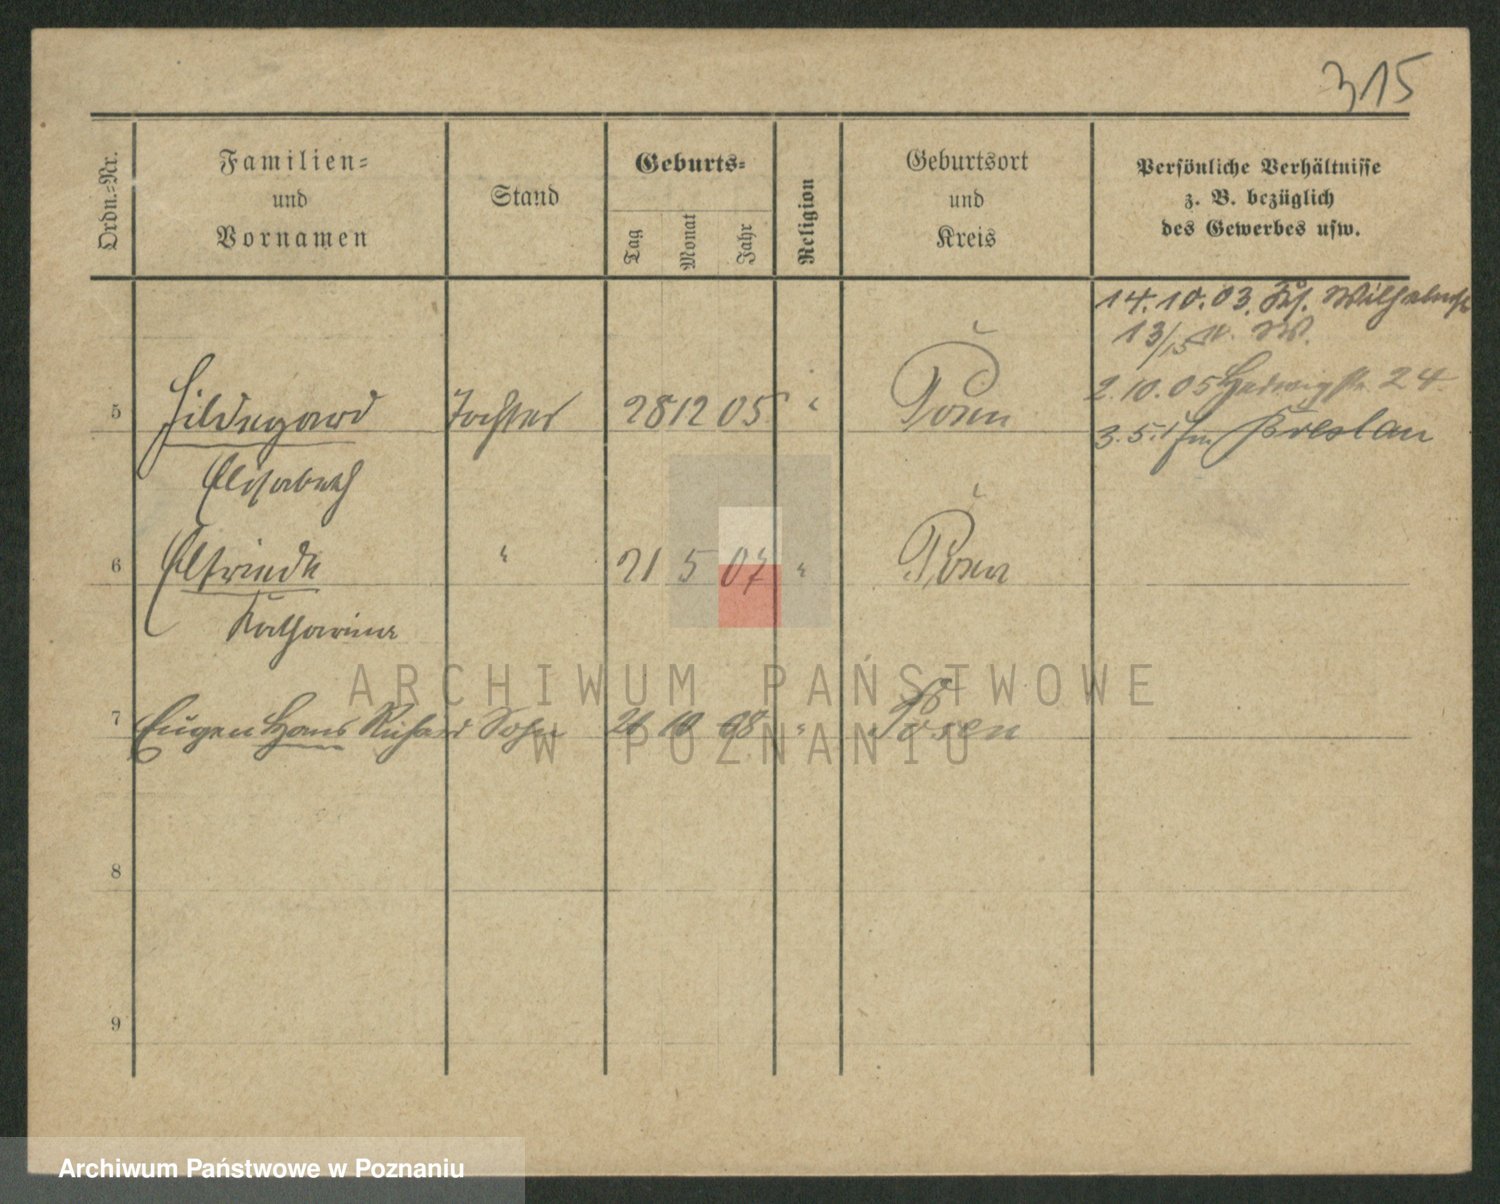 315
Ordn.=Nr.
Familien=
und
Vornamen
Stand
Geburts=
Tag
Monat
Jahr
Religion
Geburtsort
und
Kreis
Persönliche Verhältnisse
z. B. bezüglich
des Gewerbes usw.
14.10.03.
13/15
2.10.05 Hedwigstr. 24
3.5. Breslau
5 Hildegard Tochter 28 12 05 " Posen
Elisabeth
6 Elfriede " 21 5 07 " Posen
Katharina
7 Eugen Hans Richard Sohn 21 10 08 " Posen
8
9
ARCHIWUM PAŃSTWOWE
W POZNANIU
Archiwum Państwowe w Poznaniu